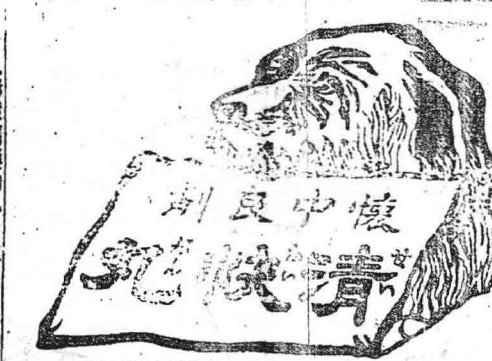 懷中良劑
清快丸